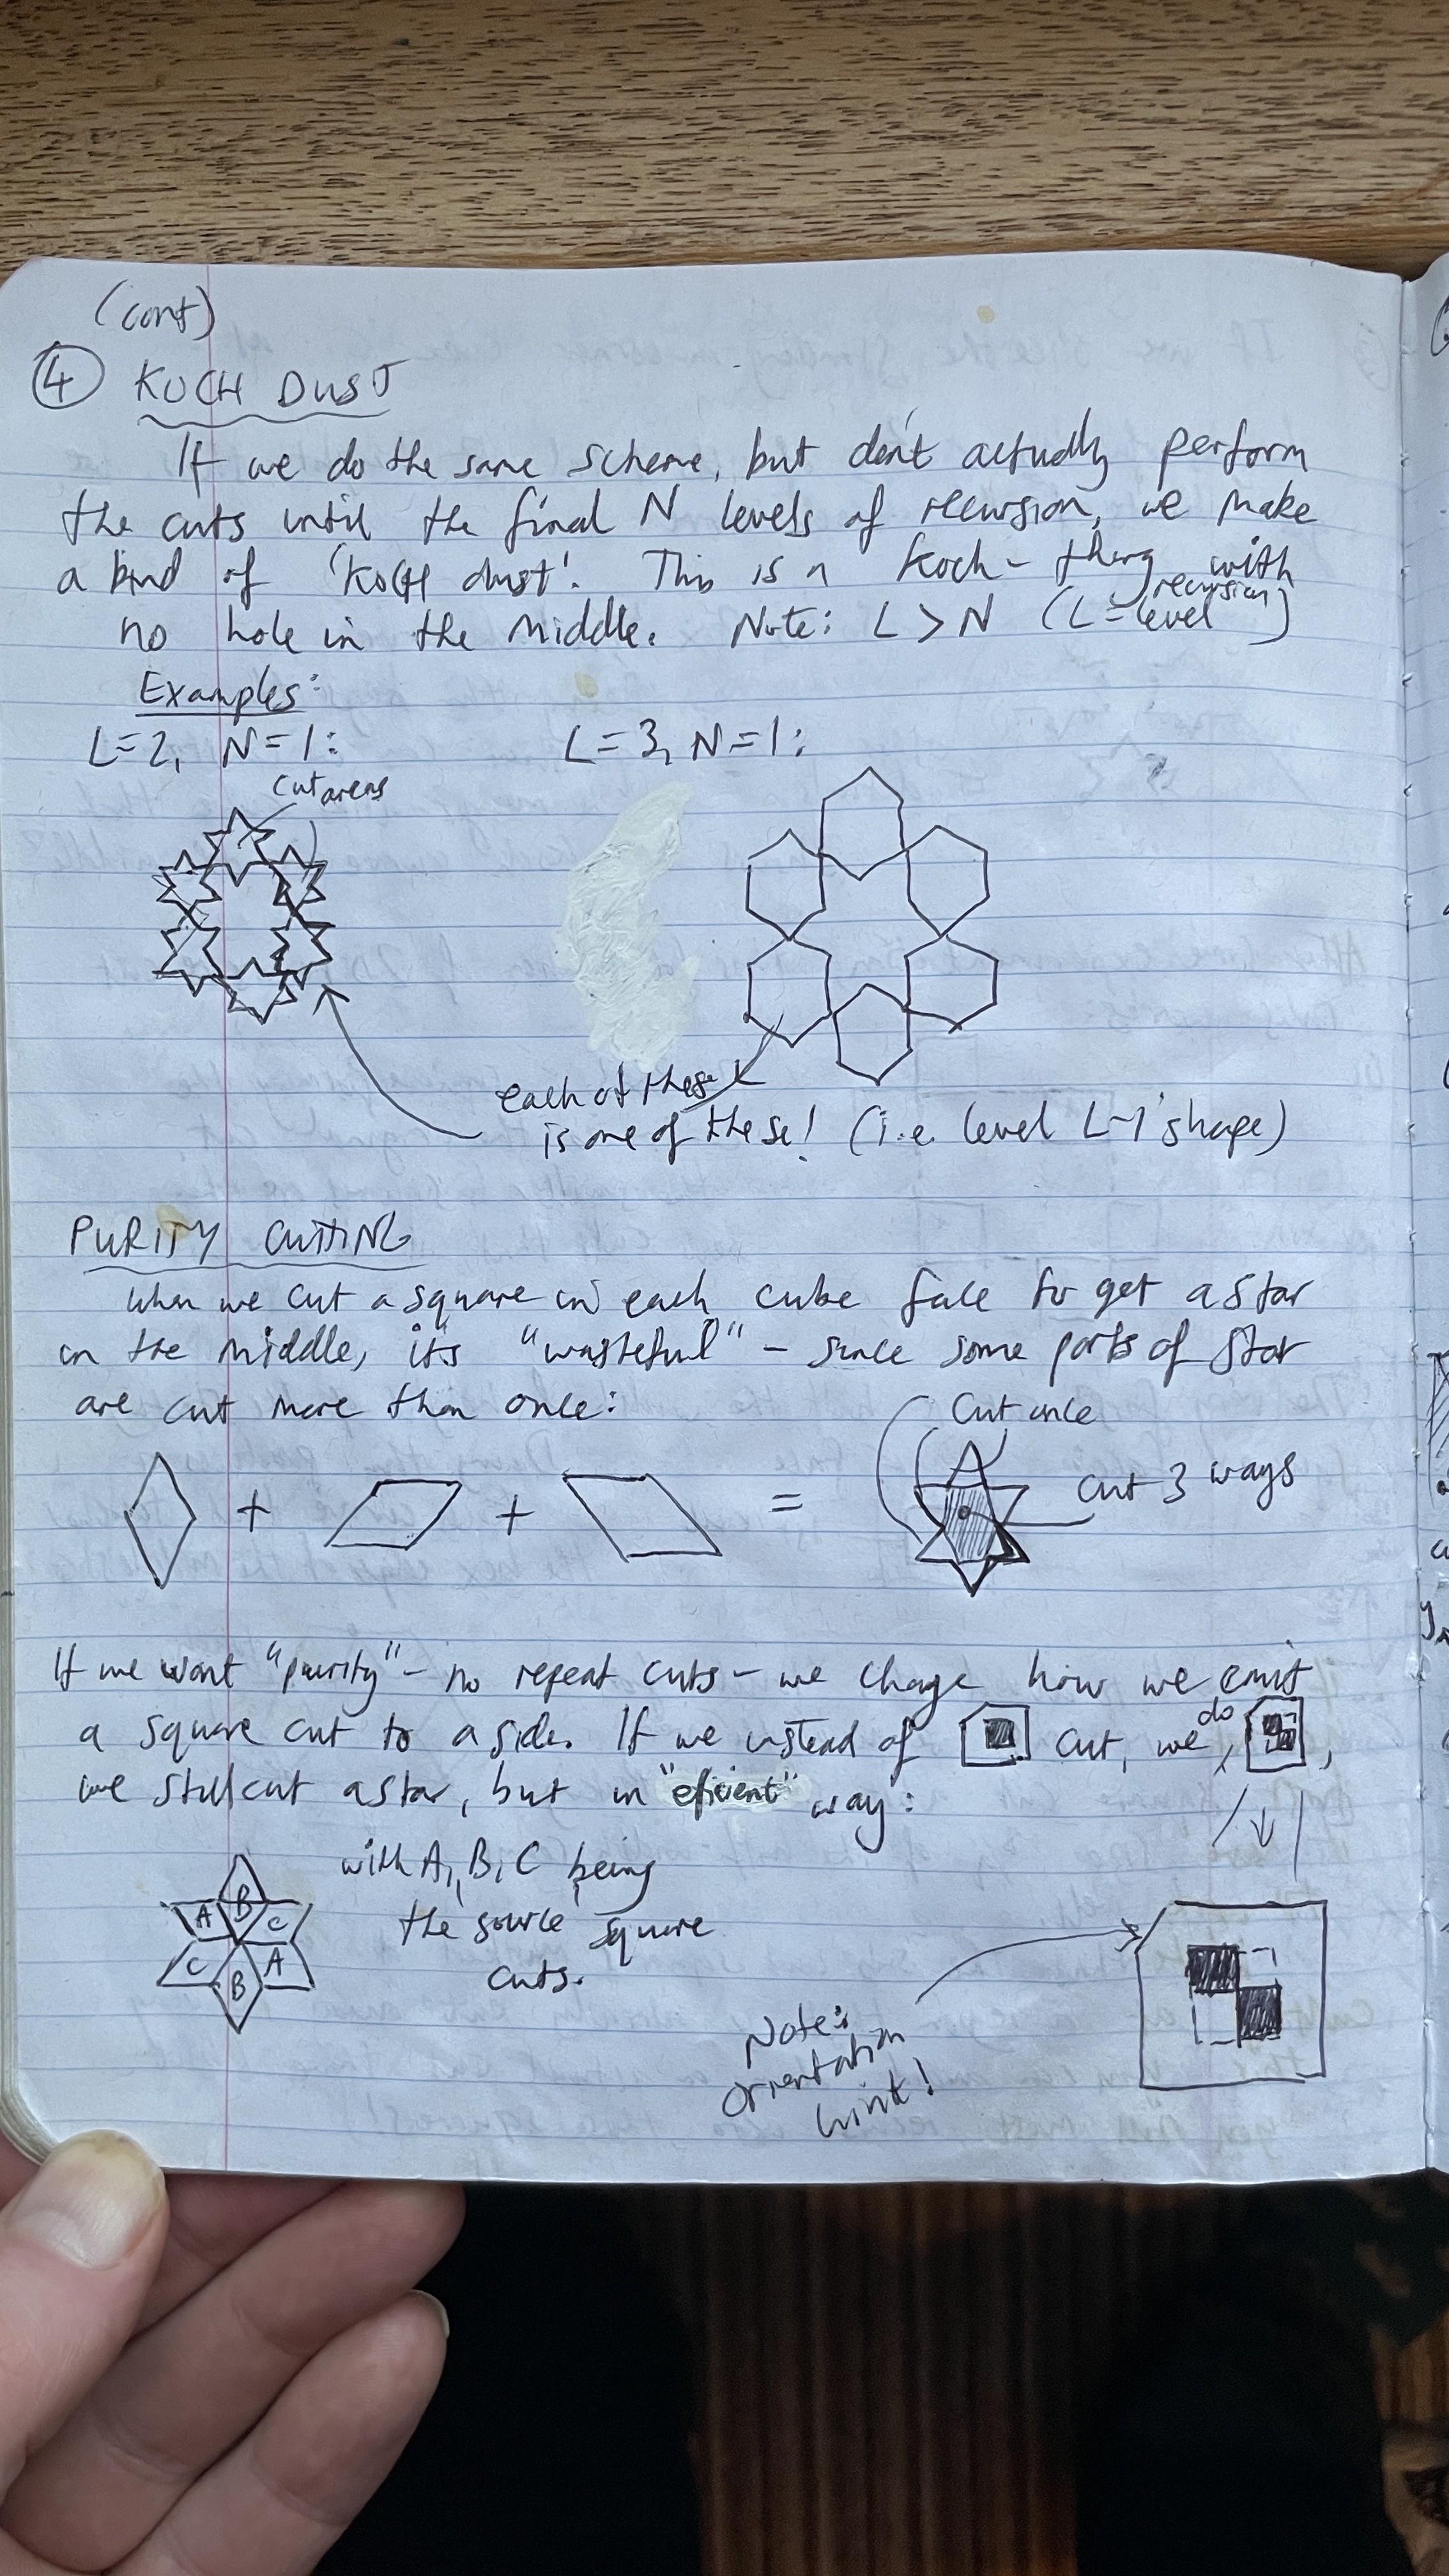 (cont)
④ KOCH DUST
If we do the same scheme, but don't actually perform
the cuts until the final N levels of recursion, we make
a kind of 'KOCH dust'. This is a Koch-thing with
no hole in the middle. Note: L > N (L = recursion level)
Examples:
L=2, N=1: L=3, N=1:
cut areas
each of these
is one of these! (i.e. level L-1 shape)
PURITY CUTTING
When we cut a square in each cube face to get a star
in the middle, its "wasteful" - since some parts of star
are cut more than once:
Cut once
+ + = cut 3 ways
If we want "purity" - no repeat cuts - we change how we emit
a square cut to a side. If we instead of cut, we do,
we still cut a star, but in "eficient" way:
with A, B, C being
the source square
cuts.
B
A C
C A
B
Note:
orientation
wink!